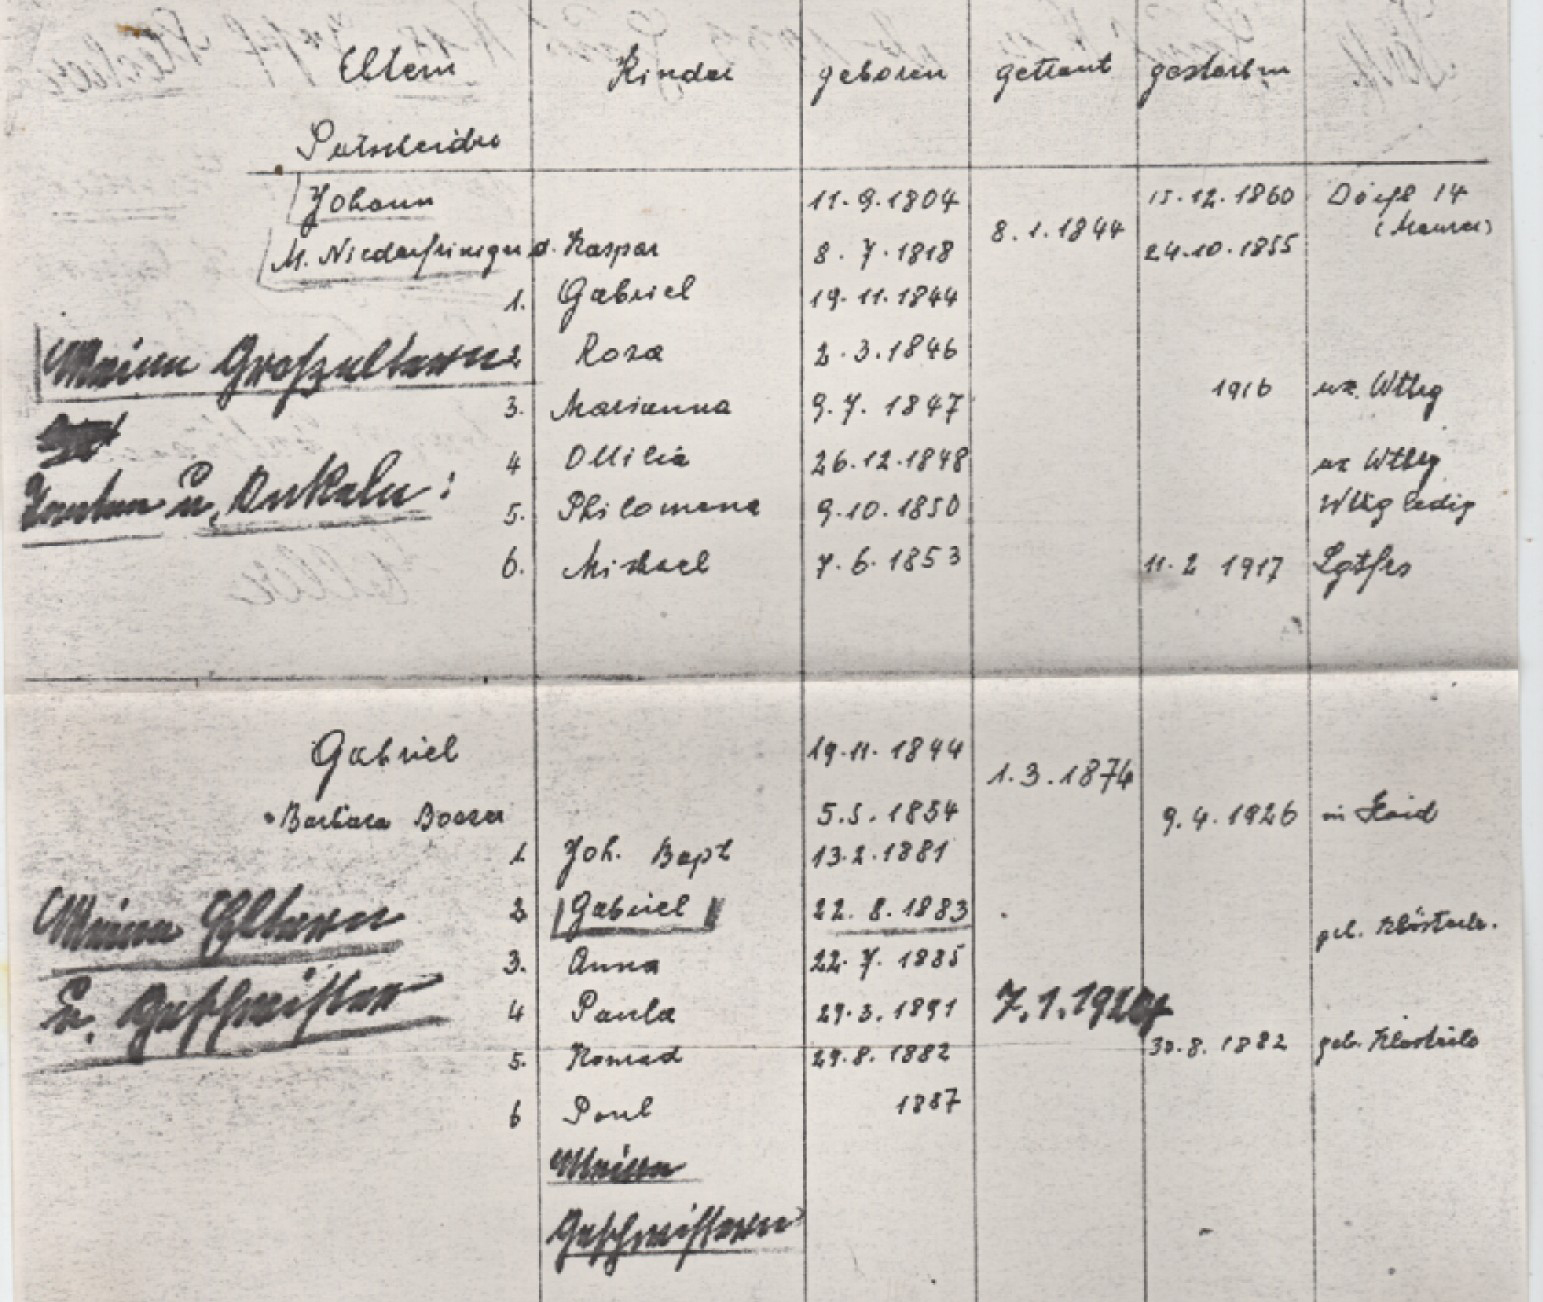 Eltern Kinder geboren getraut gestorben
Putscheider
Johann 11.9.1804 15.12.1860 Dörfl 14
8.1.1844 (Maurer)
M. Niederfriniger d. Kaspar 8.7.1818 24.10.1855
1. Gabriel 19.11.1844
Meine Großeltern 2 Rosa 2.3.1846
3. Marianna 9.7.1847 1916 Wttg
4 Ottilia 26.12.1848 Wttg
Tanten u. Onkeln: 5. Philomena 9.10.1850 Wttg ledig
6. Michael 7.6.1853 11.2 1917 Lgtfrs
Gabriel 19.11.1844
1.3.1874
Barbara 5.5.1854 9.4.1926 in
1. Joh. Bapt 13.2.1881
Meine Eltern 2. Gabriel 22.8.1883
3. Anna 22.7.1885
u. Geschwister 4 Paula 29.3.1891 7.1.1924
5. Konrad 29.8.1882 30.8.1882 geb.
6 Paul 1887
Meine
Geschwistern